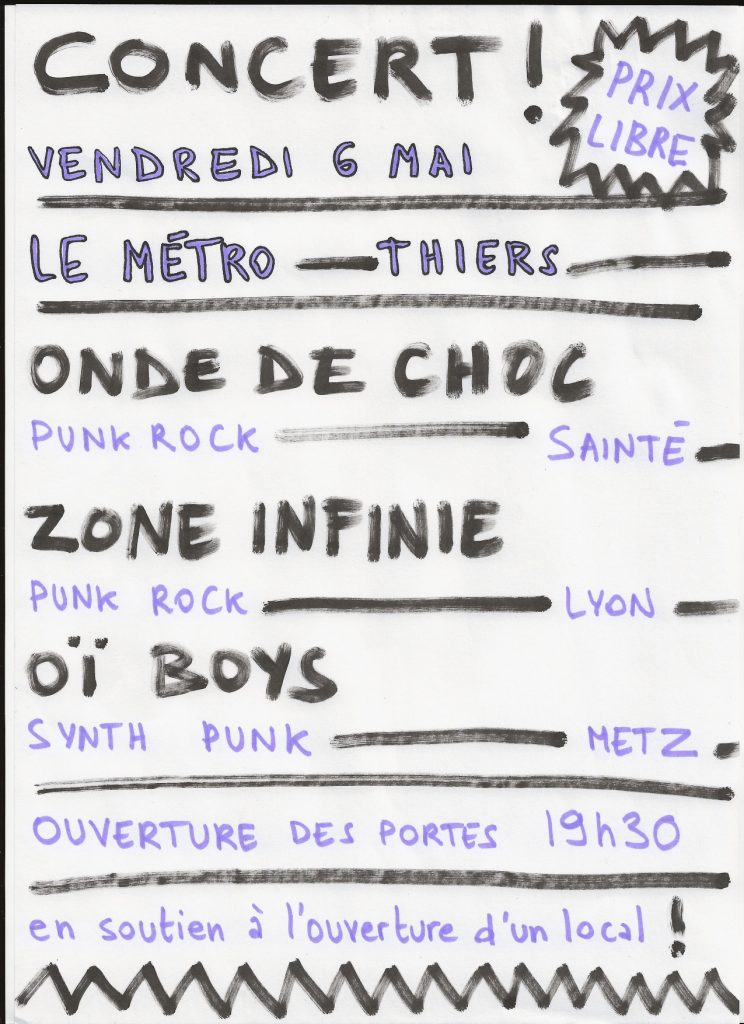 CONCERT !
PRIX
LIBRE
VENDREDI 6 MAI
LE MÉTRO — THIERS —
ONDE DE CHOC
PUNK ROCK — SAINTÉ —
ZONE INFINIE
PUNK ROCK — LYON —
OÏ BOYS
SYNTH PUNK — METZ -
OUVERTURE DES PORTES 19h30
en soutien à l'ouverture d'un local !